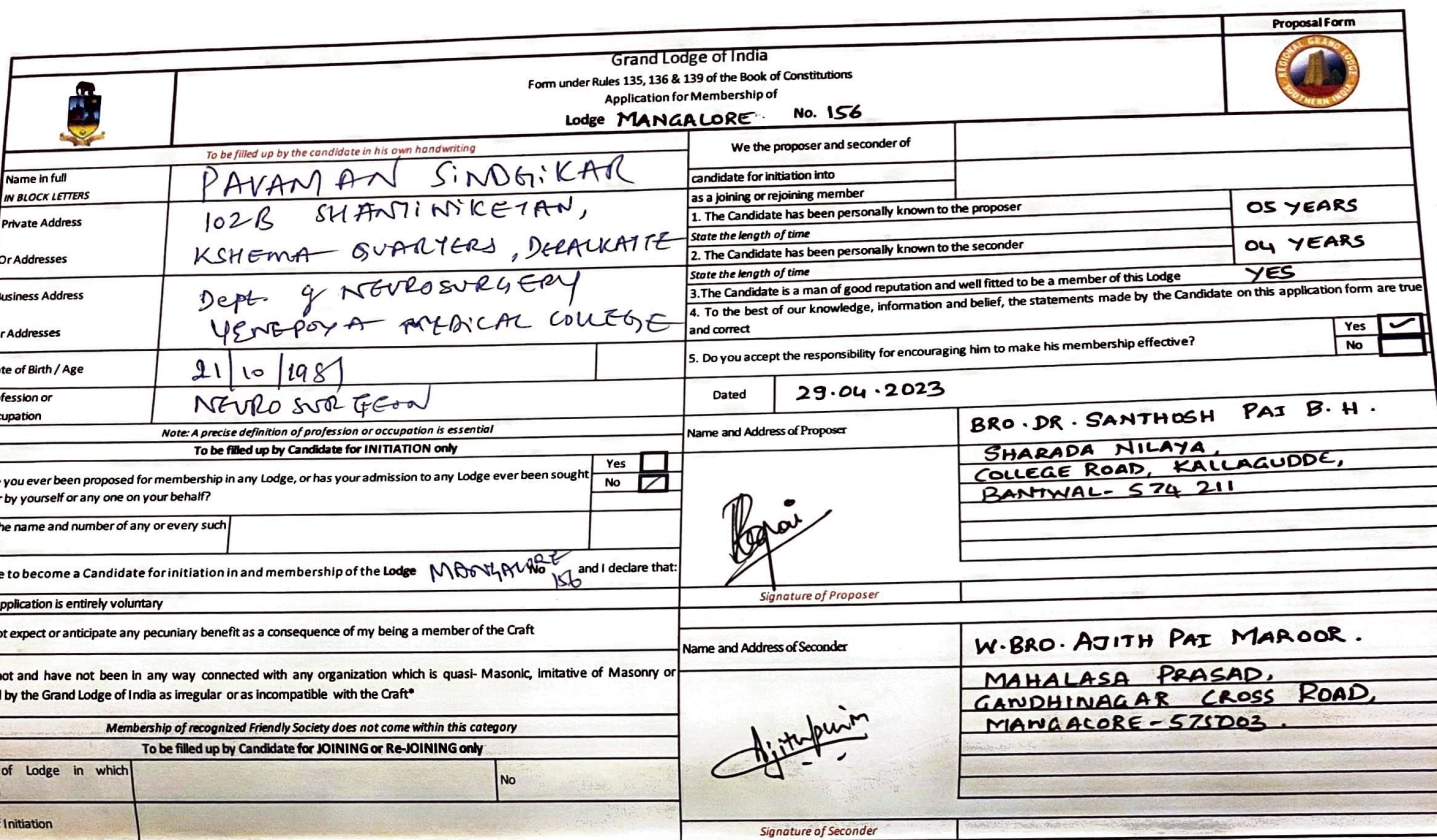 Proposal Form
Grand Lodge of India
Form under Rules 135, 136 & 139 of the Book of Constitutions
Application for Membership of
Lodge MANGALORE No. 156
REGIONAL GRAND LODGE
SOUTHERN INDIA
To be filled up by the candidate in his own handwriting
Name in full
IN BLOCK LETTERS
PAVAMAN SINDGIKAR
Private Address
102-B SHANTINIKETAN,
Or Addresses
KSHEMA QUARTERS, DERALKATTE
usiness Address
Dept. of NEUROSURGERY
r Addresses
YENEPOYA MEDICAL COLLEGE
te of Birth / Age
21/10/1981
fession or
cupation
NEUROSURGEON
Note: A precise definition of profession or occupation is essential
To be filled up by Candidate for INITIATION only
you ever been proposed for membership in any Lodge, or has your admission to any Lodge ever been sought
by yourself or any one on your behalf?
Yes
No
he name and number of any or every such
e to become a Candidate for initiation in and membership of the Lodge MANGALORE No 156 and I declare that:
pplication is entirely voluntary
ot expect or anticipate any pecuniary benefit as a consequence of my being a member of the Craft
not and have not been in any way connected with any organization which is quasi- Masonic, imitative of Masonry or
by the Grand Lodge of India as irregular or as incompatible with the Craft*
Membership of recognized Friendly Society does not come within this category
To be filled up by Candidate for JOINING or Re-JOINING only
of Lodge in which
No
Initiation
We the proposer and seconder of
candidate for initiation into
as a joining or rejoining member
1. The Candidate has been personally known to the proposer
05 YEARS
State the length of time
2. The Candidate has been personally known to the seconder
04 YEARS
State the length of time
3.The Candidate is a man of good reputation and well fitted to be a member of this Lodge YES
4. To the best of our knowledge, information and belief, the statements made by the Candidate on this application form are true
and correct
5. Do you accept the responsibility for encouraging him to make his membership effective?
Yes ✓
No
Dated 29.04.2023
Name and Address of Proposer
BRO. DR. SANTHOSH PAI B.H.
SHARADA NILAYA,
COLLEGE ROAD, KALLAGUDDE,
BANTWAL- 574 211
Signature of Proposer
Name and Address of Seconder
W.BRO. AJITH PAI MAROOR.
MAHALASA PRASAD,
GANDHINAGAR CROSS ROAD,
MANGALORE-575003.
Signature of Seconder